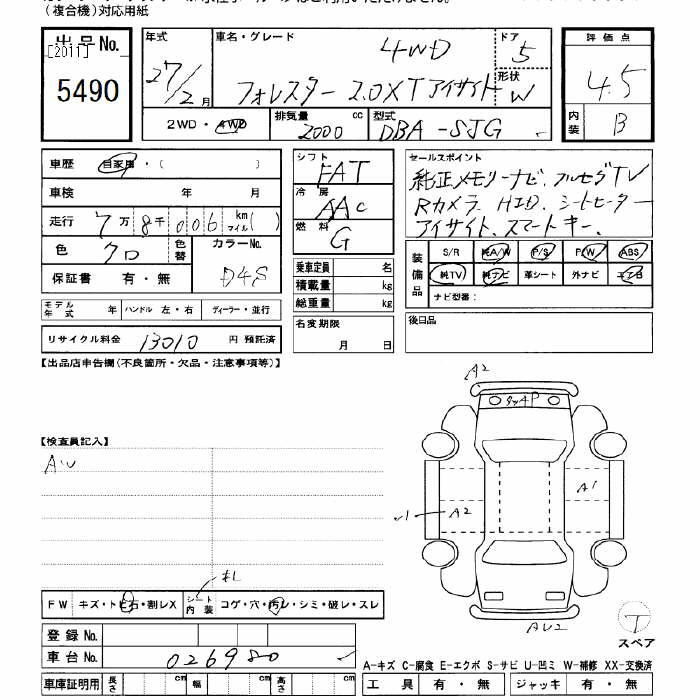 (複合機)対応用紙
出品No.
[2011]
5490
年式
27/2月
車名・グレード
4WD
フォレスター 2.0XT アイサイト
ドア
5
形状
W
2WD・4WD
排気量
2000 cc
型式
DBA-SJG
評価点
4.5
内装
B
車歴 自家用・( )
車検 年 月
走行 7万8千006km マイル( )
色 クロ
色替
カラーNo.
D4S
保証書 有・無
モデル年式 年 ハンドル 左・右 ディーラー・並行
リサイクル料金 13010 円 預託済
シフト
FAT
冷房
AAC
燃料
G
乗車定員 名
積載量 kg
総重量 kg
名変期限
月 日
セールスポイント
純正メモリーナビ、フルセグTV
Rカメラ、HID、シートヒーター
アイサイト、スマートキー、
装備品
S/R 純A/W P/S P/W ABS
純TV 純ナビ 革シート 外ナビ エアB
ナビ型番:
後日品
【出品店申告欄(不良箇所・欠品・注意事項等)】
【検査員記入】
A・U
A2
タッチP
A1
A2
√1
AU2
T
スペア
キL
FW キズ・トビ石・割レX
シート内装 コゲ・穴・汚レ・シミ・破レ・スレ
登録No.
車台No. 026980
A-キズ C-腐食 E-エクボ S-サビ U-凹ミ W-補修 XX-交換済
車庫証明用 長さ cm 幅 cm 高さ cm
工具 有・無 ジャッキ 有・無